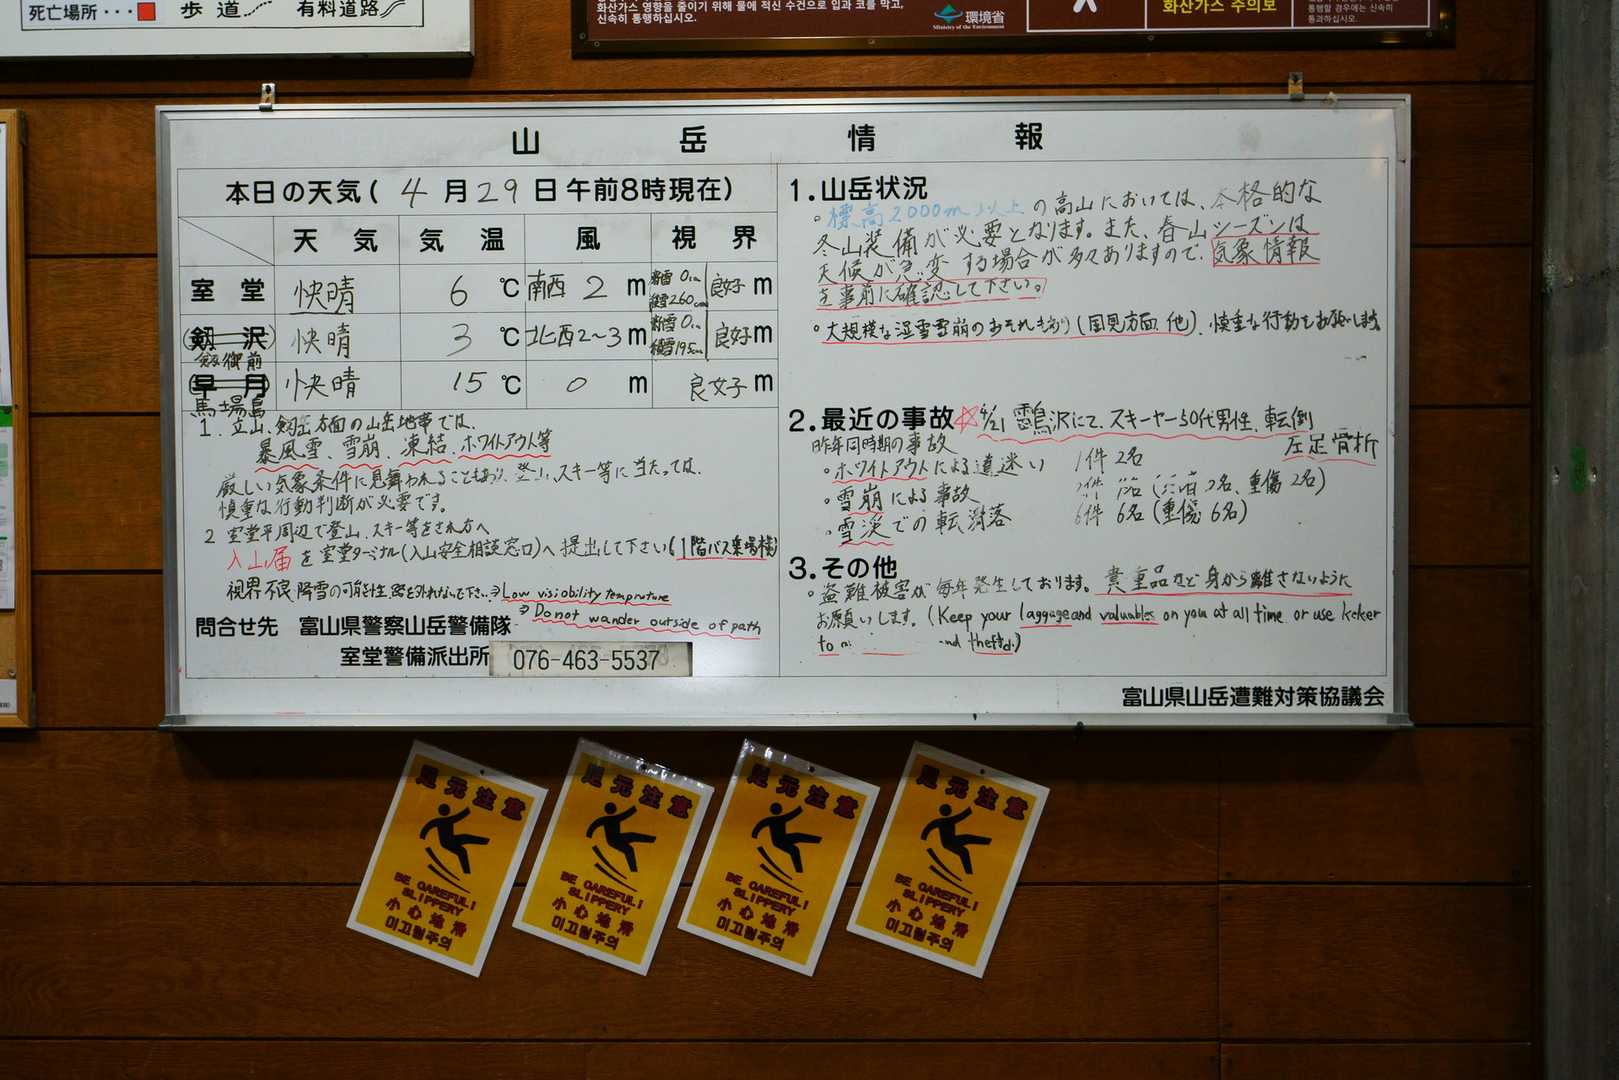 死亡場所・・・
歩道
有料道路
화산가스 영향을 줄이기 위해 물에 적신 수건으로 입과 코를 막고,
신속히 통행하십시오.
環境省
Ministry of the Environment
화산가스 주의보
통행할 경우에는 신속히
통과하십시오.
山岳情報
本日の天気(4月29日午前8時現在)
天気 気温 風 視界
室堂 快晴 6℃ 南西2m 新雪0cm 積雪260cm 良好m
剱沢 剱御前 快晴 3℃ 北西2~3m 新雪0cm 積雪195cm 良好m
早月 馬場島 快晴 15℃ 0m 良好m
1. 立山、剱岳方面の山岳地帯では、
暴風雪、雪崩、凍結、ホワイトアウト等
厳しい気象条件に見舞われることもあり、登山、スキー等に当たっては、
慎重な行動判断が必要です。
2 室堂平周辺で登山、スキー等をされる方へ
入山届を室堂ターミナル(入山安全相談窓口)へ提出して下さい(1階バス乗場横)
視界不良、降雪の可能性、路を外れないで下さい⇒Low visiobility temprature
⇒Do not wander outside of path
問合せ先 富山県警察山岳警備隊
室堂警備派出所 076-463-5537
1.山岳状況
。標高2000m以上の高山においては、本格的な
冬山装備が必要となります。また、春山シーズンは
天候が急変する場合が多々ありますので、気象情報
を事前に確認して下さい。
。大規模な湿雪雪崩のおそれあり(国見方面、他)、慎重な行動をお願いします。
2.最近の事故 ☆4/21 雷鳥沢にて、スキーヤー50代男性、転倒
左足骨折
昨年同時期の事故
。ホワイトアウトによる道迷い 1件 2名
・雪崩による事故 (死者2名、重傷2名)
・雪渓での転滑落 6件 6名(重傷6名)
3.その他
。盗難被害が毎年発生しております。貴重品など身から離さないように
お願いします。(Keep your laggage and valuables on you at all time or use kcker
to and theftd.)
富山県山岳遭難対策協議会
足元注意
BE CAREFUL!
SLIPPERY
小心地滑
미끄럼주의
足元注意
BE CAREFUL!
SLIPPERY
小心地滑
미끄럼주의
足元注意
BE CAREFUL!
SLIPPERY
小心地滑
미끄럼주의
足元注意
BE CAREFUL!
SLIPPERY
小心地滑
미끄럼주의